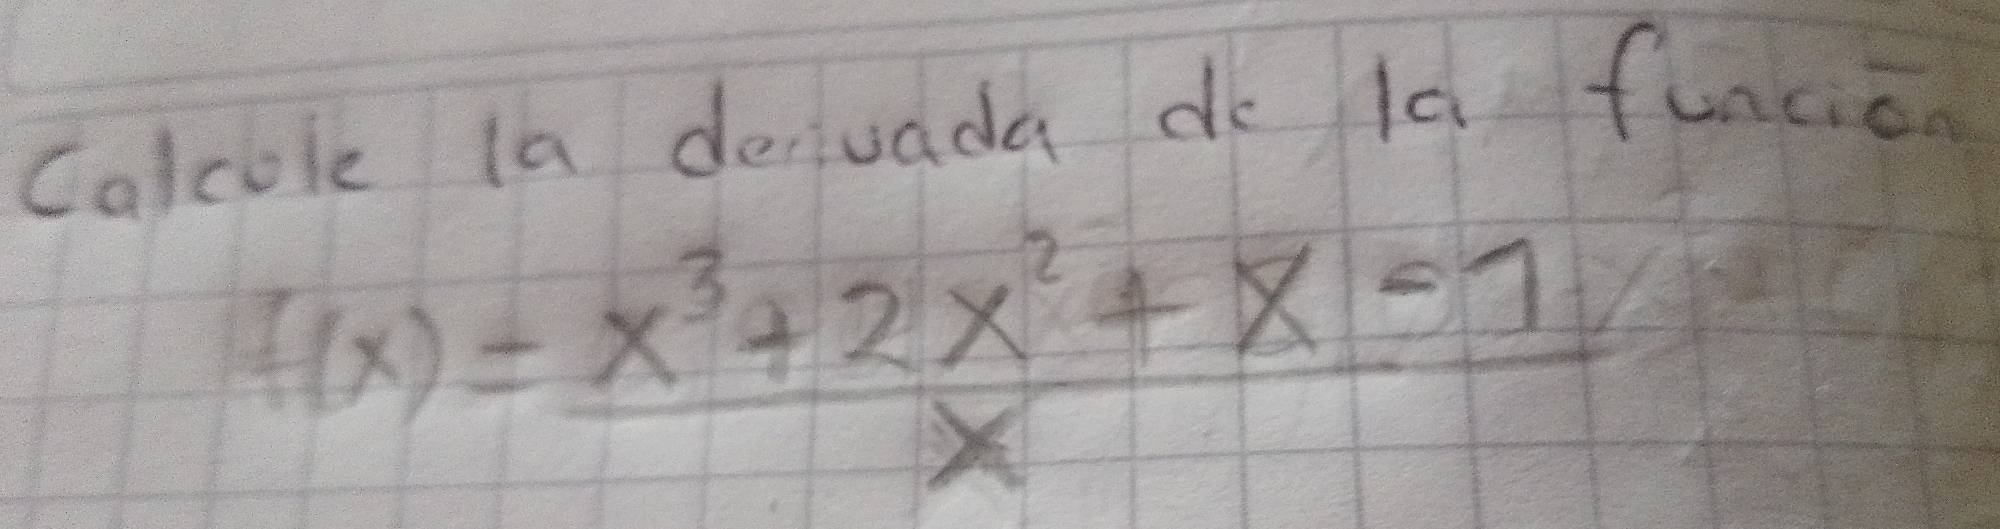 Calcule la derivada de la función
f(x) = x³ + 2x² + x - 1
x